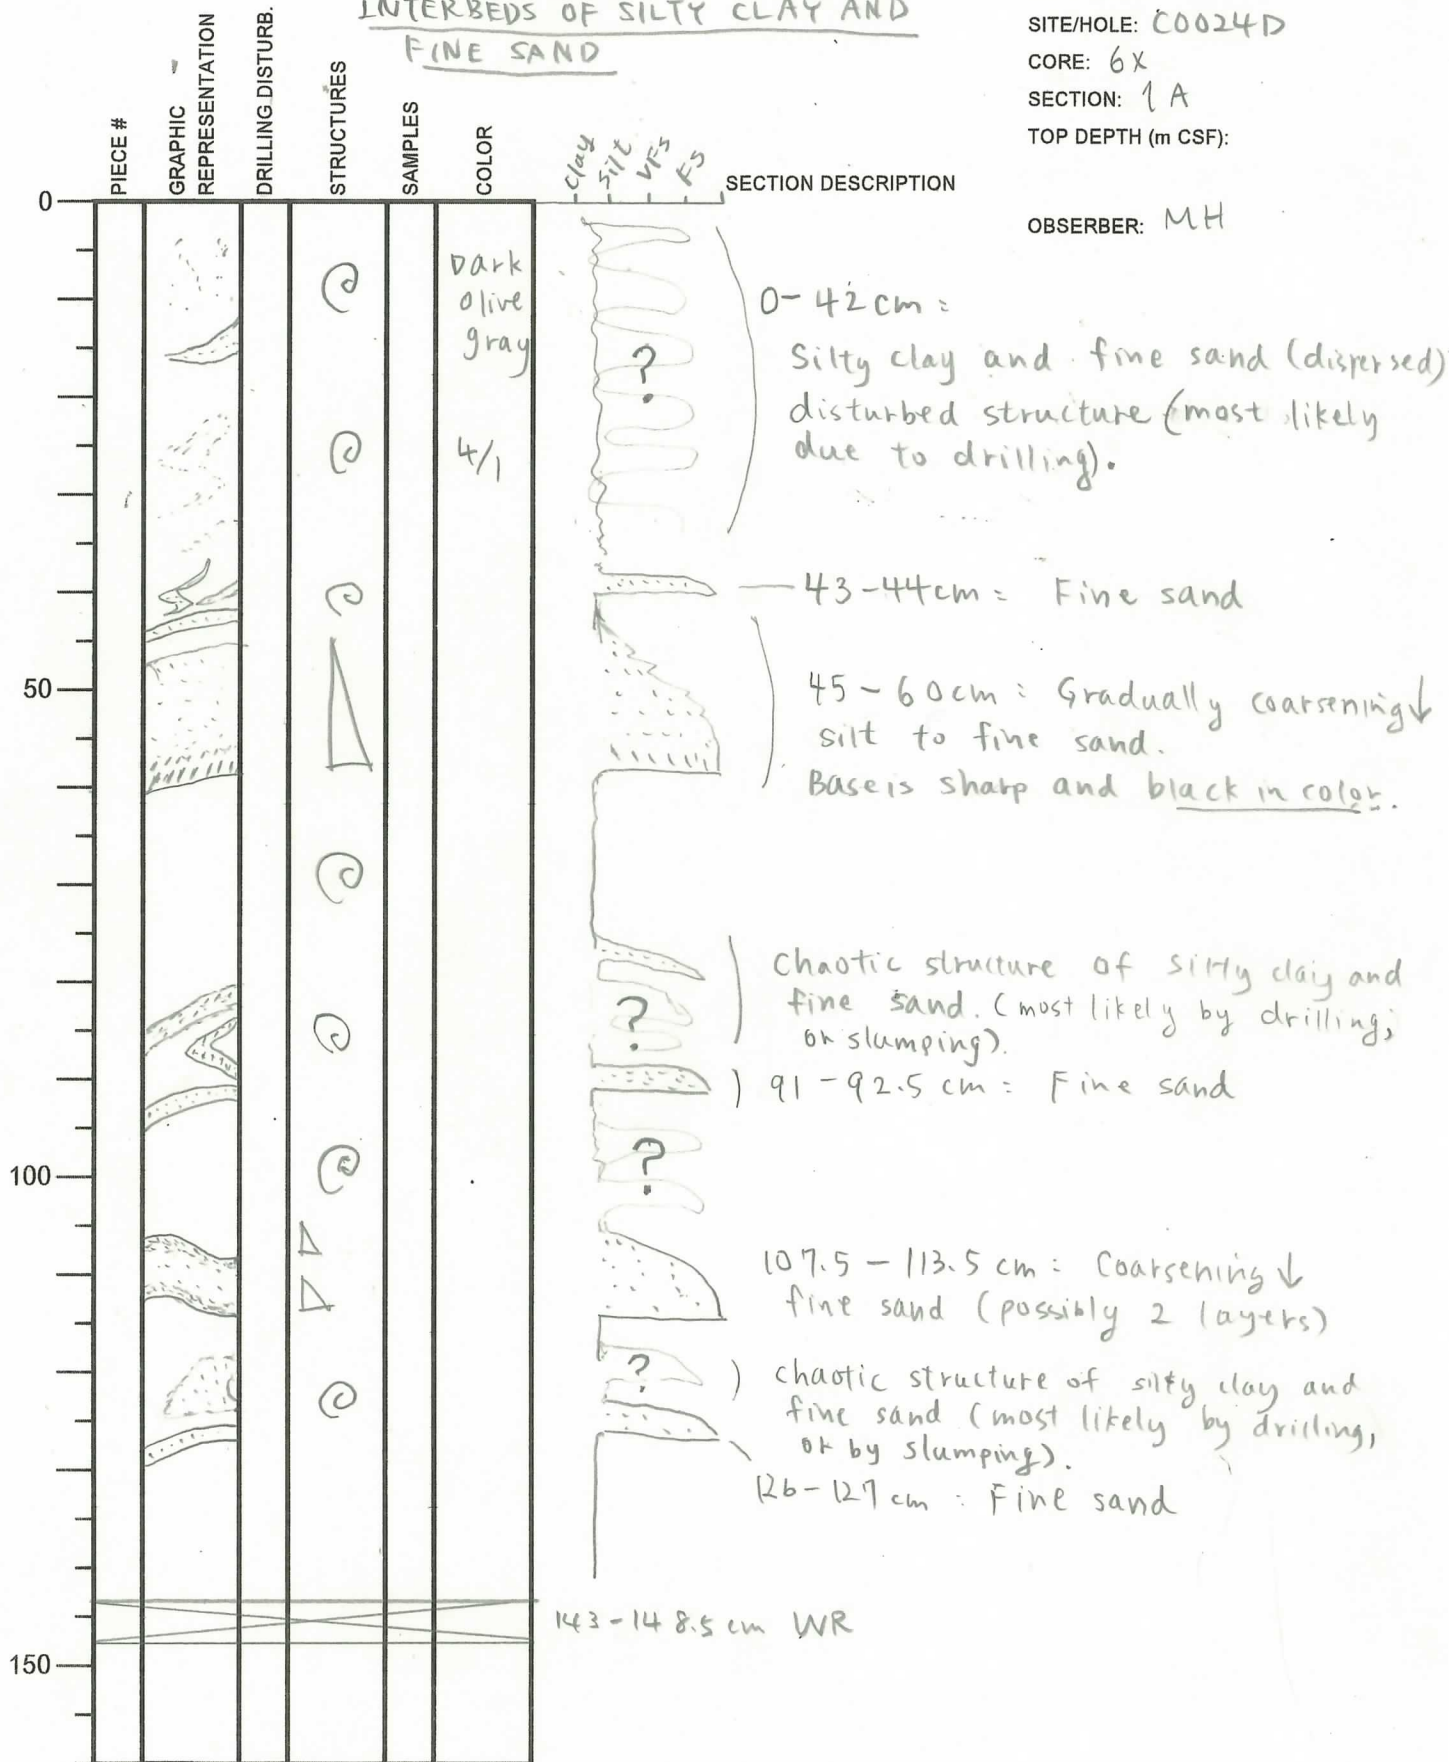 INTERBEDS OF SILTY CLAY AND
FINE SAND
SITE/HOLE: C0024D
CORE: 6X
SECTION: 1A
TOP DEPTH (m CSF):
OBSERBER: MH
PIECE #
GRAPHIC
REPRESENTATION
DRILLING DISTURB.
STRUCTURES
SAMPLES
COLOR
Clay
Silt
VFS
FS
SECTION DESCRIPTION
0
Dark
olive
gray
4/1
?
0-42 cm:
Silty clay and fine sand (dispersed)
disturbed structure (most likely
due to drilling).
43-44cm: Fine sand
50
45-60cm: Gradually coarsening↓
silt to fine sand.
Base is sharp and black in color.
?
Chaotic structure of silty clay and
fine sand. (most likely by drilling,
or slumping).
91-92.5 cm: Fine sand
100
?
107.5-113.5 cm: Coarsening↓
fine sand (possibly 2 layers)
?
chaotic structure of silty clay and
fine sand (most likely by drilling,
or by slumping).
126-127 cm: Fine sand
143-148.5 cm WR
150